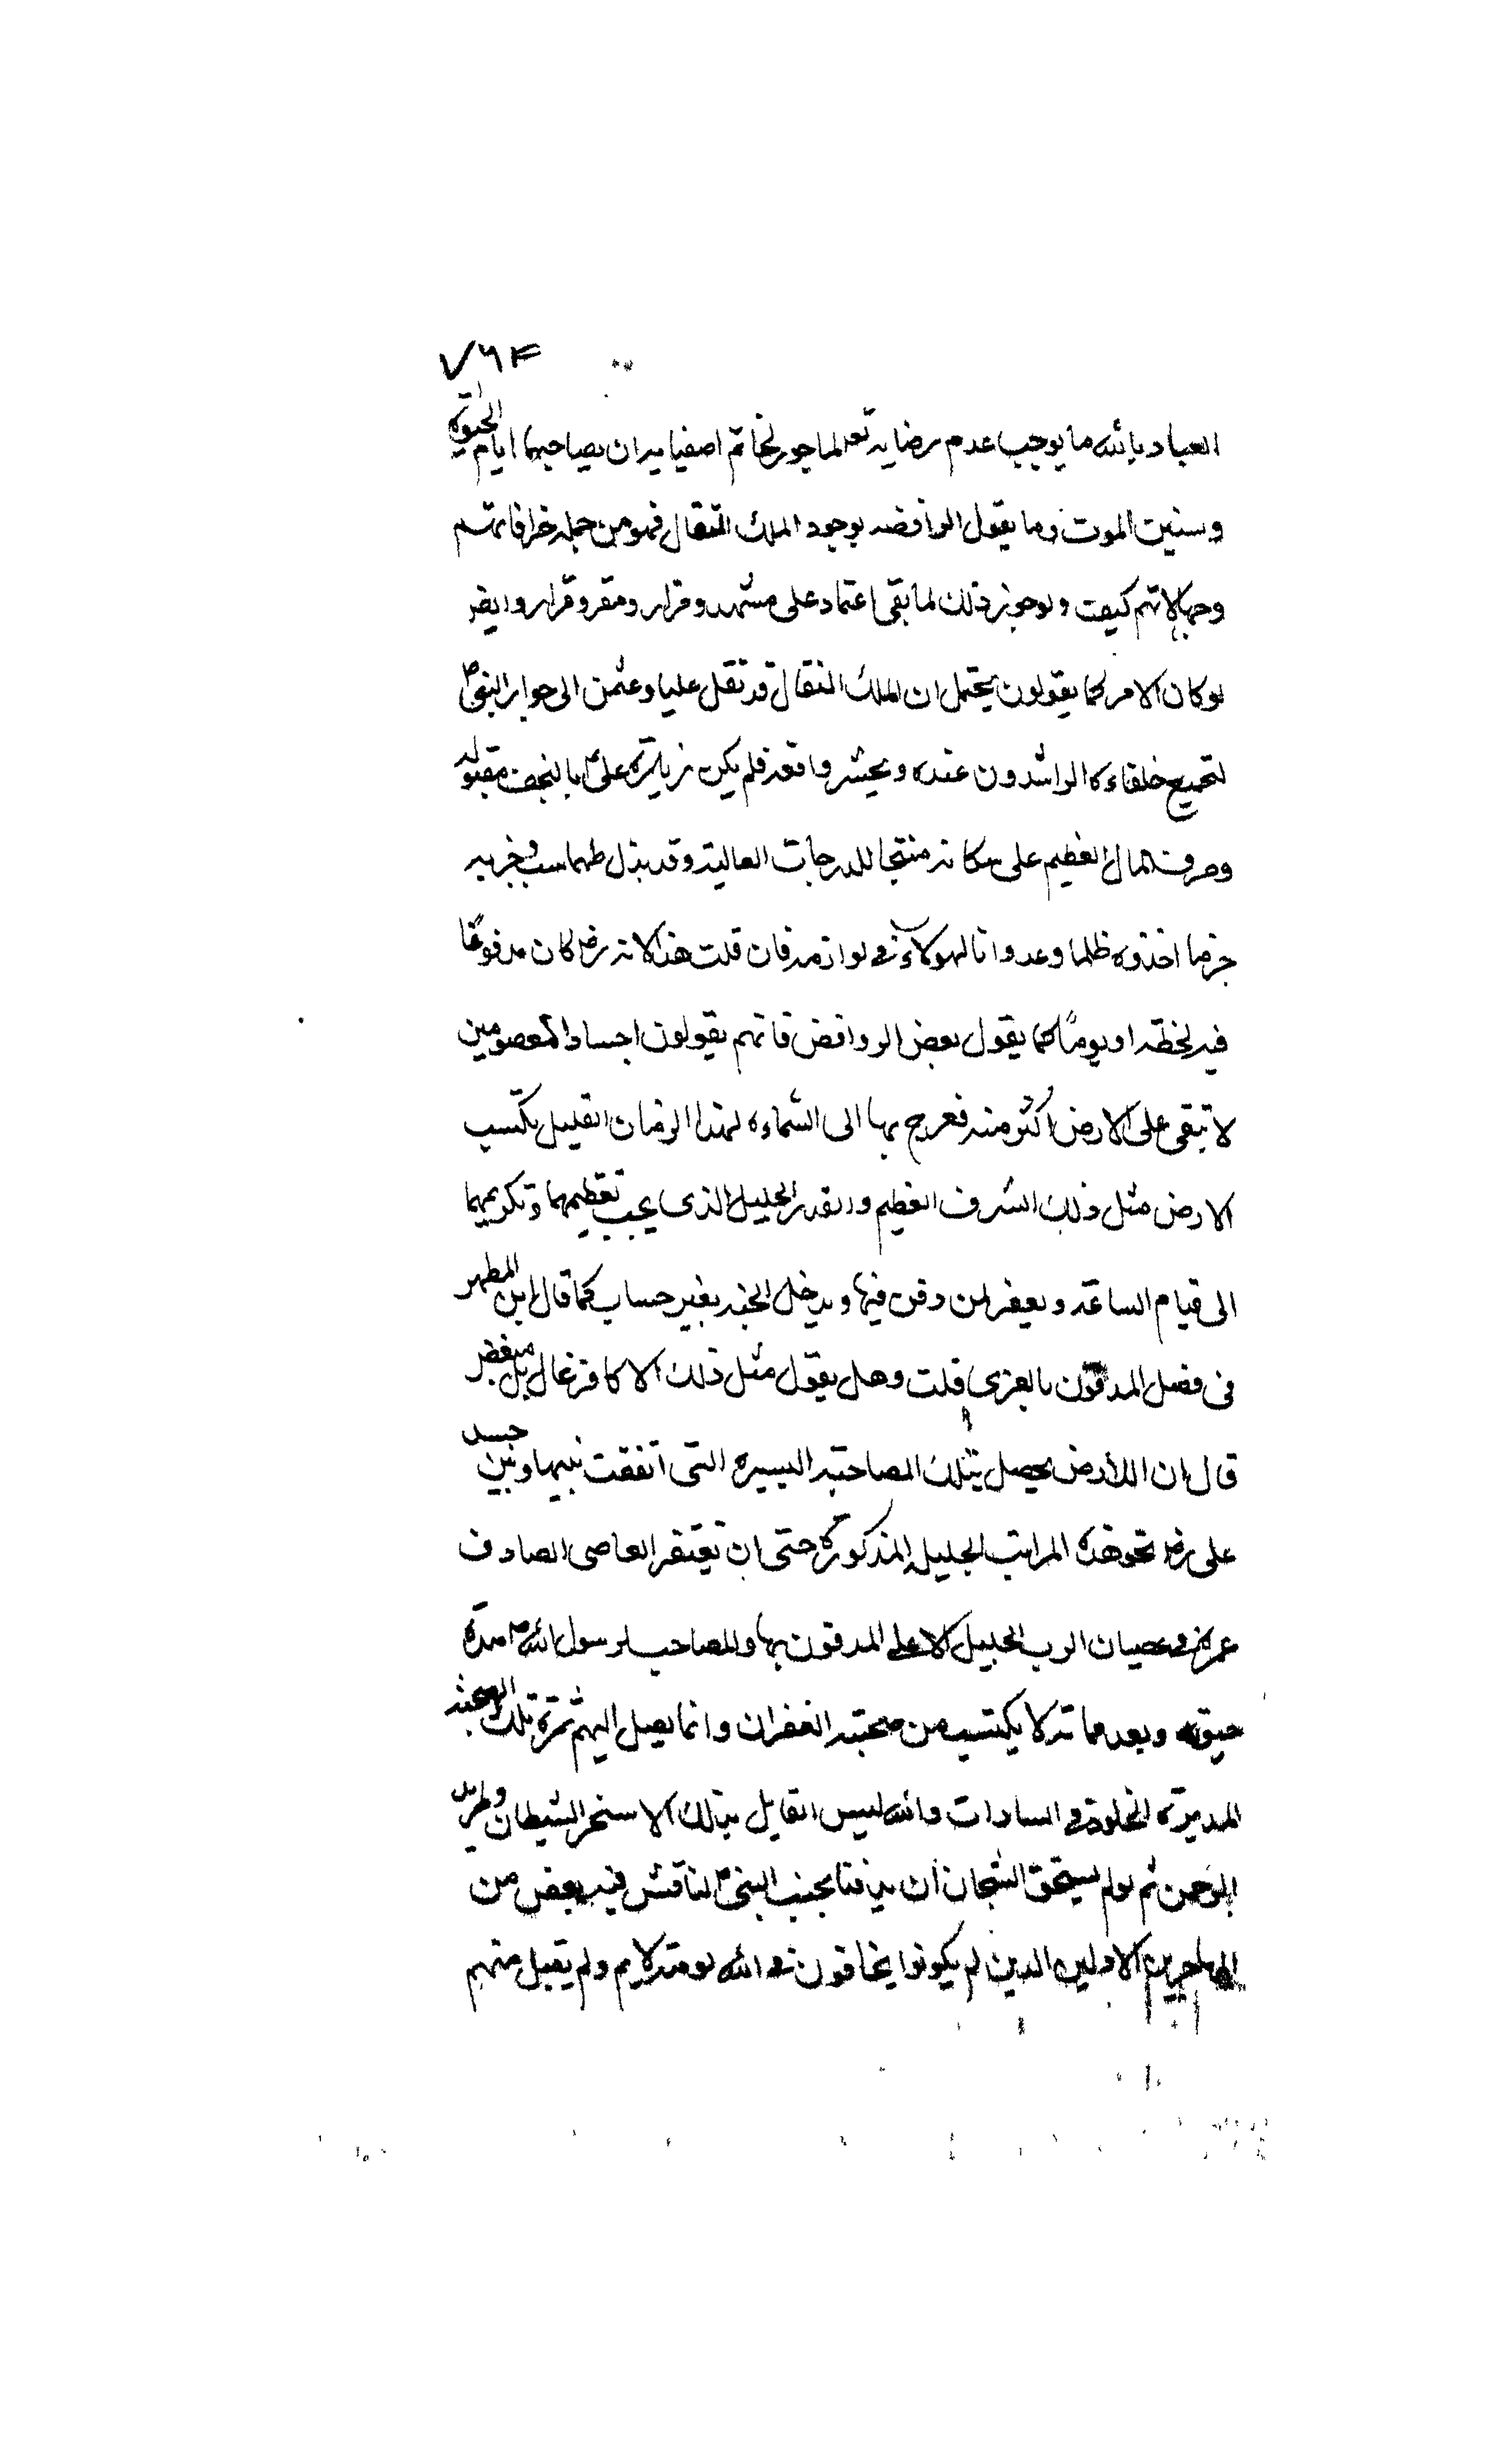 ۷۶۴
العیاذ بالله ما یوجب عدم رضایه تعه لما جوز لخاتم اصفیایه ان یصاحبهما ایام الحیوة
وسنین الموت وما یقول الروافضه بوجود الملك النقال فهو من جمله خرافاتهم
وجهالاتهم کیف ولو جوز ذلك لما بقی اعتماد علی مشهد ومزار ومقر وقرار وایض
لو کان الامر کما یقولون یحتمل ان الملك النقال قد نقل علیا وعثمن الی جوار النبی ص
لتجمیع خلفاءه الراشدون عنده ویحشر وا معه فلم یکن زیارة علی بالنجف مقبوله
وصرف المال العظیم علی سکانه منتجا للدرجات العالیة وقد بذل طهماسب وخربه
جزما اخذوه ظلما وعدوانا لهولاء فی لوازمه فان قلت هذا لانه رض کان مدفوعا
فیه لحظة او یوما کما یقول بعض الروافض فانهم یقولون اجساد المعصومین
لا تبقی علی الارض اکثر منه فعرج بها الی السماء ه لهذا الزمان القلیل یکتسب
الارض مثل ذلك الشرف العظیم والقدر الجلیل الذی یجب تعظیمها وتکریمها
الی قیام الساعة ویغفر لمن دفن فیها ویدخل الجنة بغیر حساب کما قال ابن المطهر
فی فضل المدفون بالغری قلت وهل یقول مثل ذلك الا کافر غال بل مبغض
قال ان الارض یحصل بتلك المصاحبة الیسیره التی اتفقت بینها وبین جسد
علی رض نحو هذه المراتب الجلیله المذکورة حتی ان یغتفر العاصی الصارف
عمره فی عصیان الرب الجلیل الاعلی المدفون بها والمصاحب لرسول الله ص مدة
حیوته وبعد مماته لا یکتسب من صحبته الغفران وانما یصل الیهم ثمرة تلك الصحبة
المدیرة الخلود فی السادات والله لیس القایل بتلك الا سخر الشیطان وطرید
الرحمن ثم لو لم یستحق الشیخان ان یدفنا بجنب النبی ص لناقش فیه بعض من
المهاجرین الاولین الذین لم یکونوا یخافون فی الله لومة لایم ولم یقبل منهم